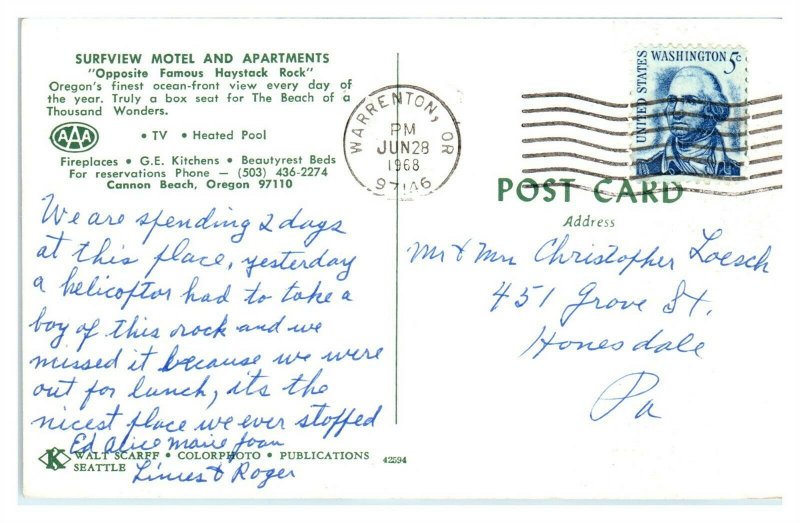 SURFVIEW MOTEL AND APARTMENTS
"Opposite Famous Haystack Rock"
Oregon's finest ocean-front view every day of
the year. Truly a box seat for The Beach of a
Thousand Wonders.
AAA
• TV • Heated Pool
Fireplaces • G.E. Kitchens • Beautyrest Beds
For reservations Phone — (503) 436-2274
Cannon Beach, Oregon 97110
We are spending 2 days
at this place, yesterday
a helicoptor had to take a
boy of this rock and we
missed it because we were
out for lunch, its the
nicest place we ever stopped
Ed Alice Marie Joan
& Roger
K
WALT SCARFF • COLORPHOTO • PUBLICATIONS
SEATTLE
42594
WARRENTON, OR
PM
JUN 28
1968
97146
UNITED STATES
WASHINGTON 5c
POST CARD
Address
Mr & Mrs Christopher Loesch
451 Grove St.
Honesdale
Pa